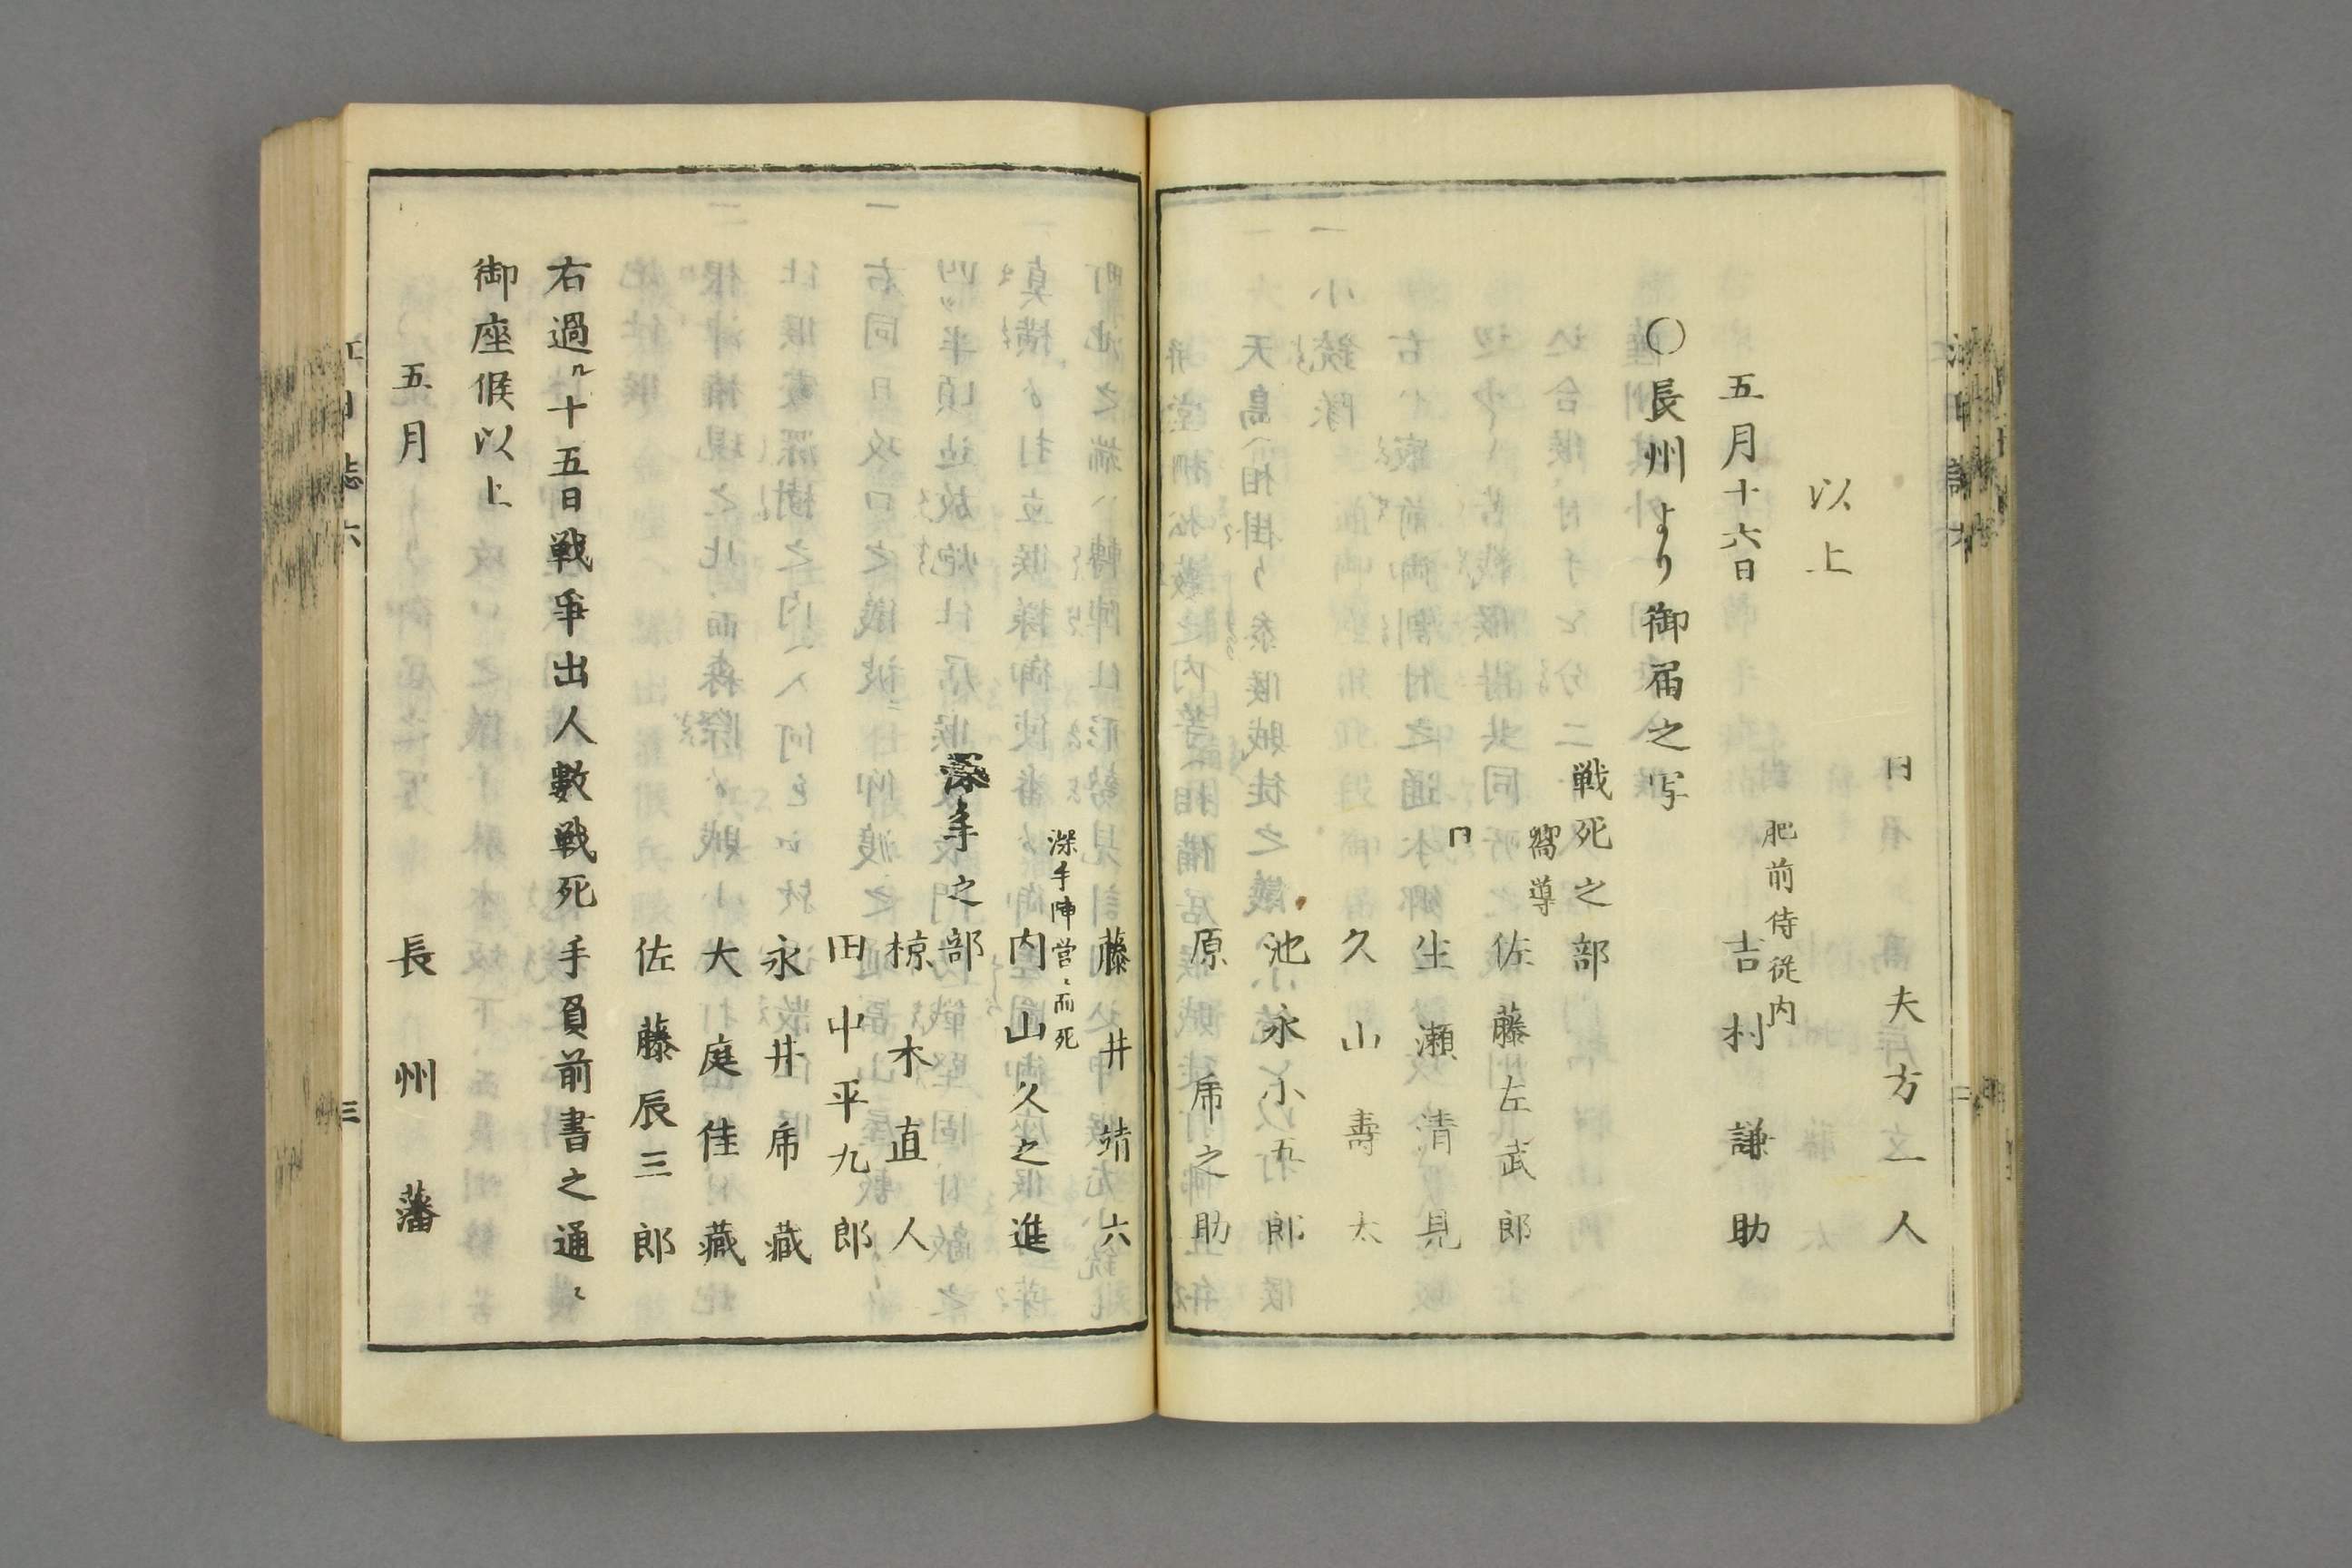 同　夫方之一人
以上
肥前侍従内
吉村謙助
五月十六日
〇長州より御届之写
戦死之部
嚮導
佐藤左武郎
同
生瀬清見
久山壽太
池永小五郎
原席之助
藤井靖六
深手陣営ニ而死
内山久之進
深手之部
椋木直人
田中平九郎
永井席藏
大庭佳藏
佐藤辰三郎
右過ル十五日戦争出人數戦死手負前書之通ニ
御座候以上
五月　長州藩
三